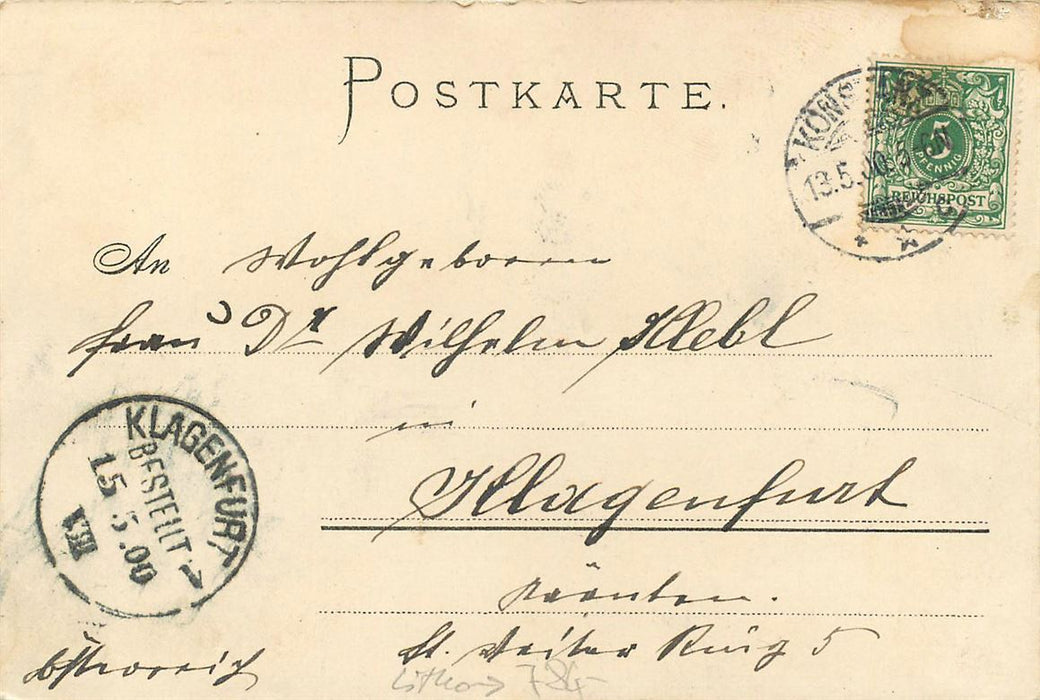 POSTKARTE.
KONSTANZ
13.5.00.5-6N
5
PFENNIG
REICHSPOST
An Wohlgeboren
Frau Dr Wilhelm Klebl
in
Klagenfurt
Kärnten.
St. Veiter Ring 5
Österreich
KLAGENFURT
BESTELLT
15 5.00
VIII
Litho 784-